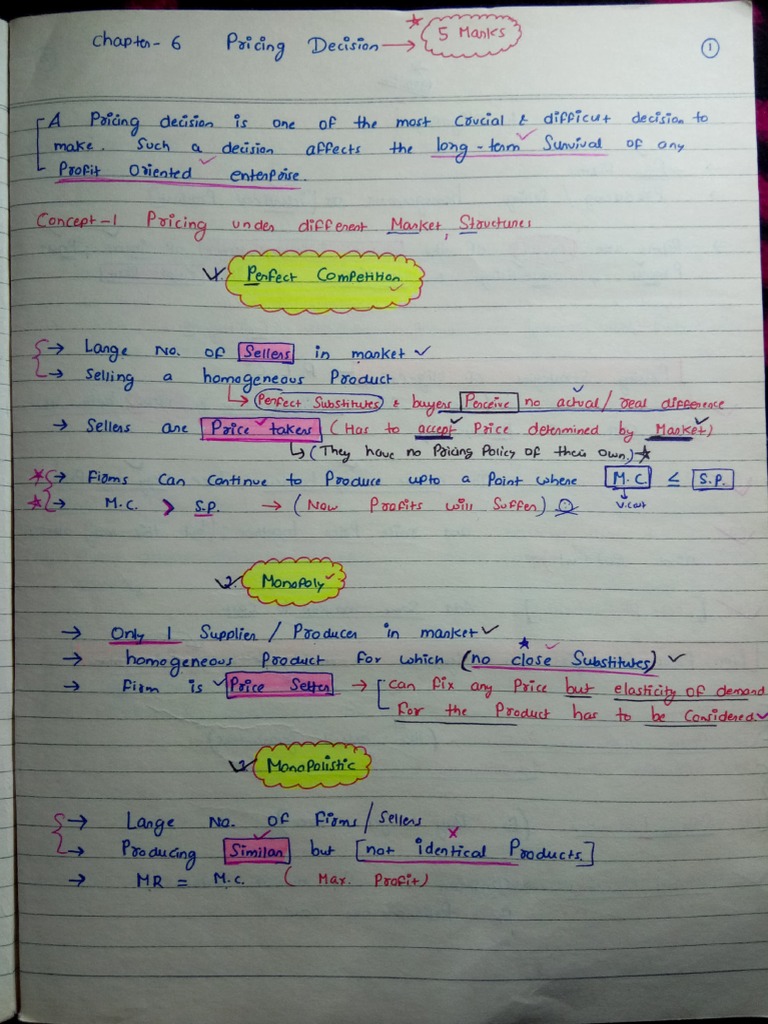 Chapter-6 Pricing Decision → 5 Marks
1
A Pricing decision is one of the most crucial & difficult decision to
make. Such a decision affects the long-term Survival of any
Profit Oriented enterprise.
Concept-1 Pricing under different Market, Structures
1. Perfect Competition
→ Large No. of Sellers in market ✓
→ Selling a homogeneous Product
↳ Perfect Substitutes & buyers Perceive no actual/real difference
→ Sellers are Price takers (Has to accept Price determined by Market)
↳ (They have no Pricing Policy of their own.) ★
★ → Firms can continue to Produce upto a Point where M.C ≤ S.P.
★ → M.C. > S.P. → (Now Profits will Suffer)
V.Cost
2. Monopoly
→ Only 1 Supplier / Producer in market ✓
→ homogeneous Product for which (no close Substitutes) ✓
→ Firm is Price Setter → [can fix any Price but elasticity of demand
for the Product has to be Considered. ✓
3. Monopolistic
→ Large No. of Firms/Sellers
→ Producing Similar but [not identical Products.]
→ MR = M.C. (Max. Profit)